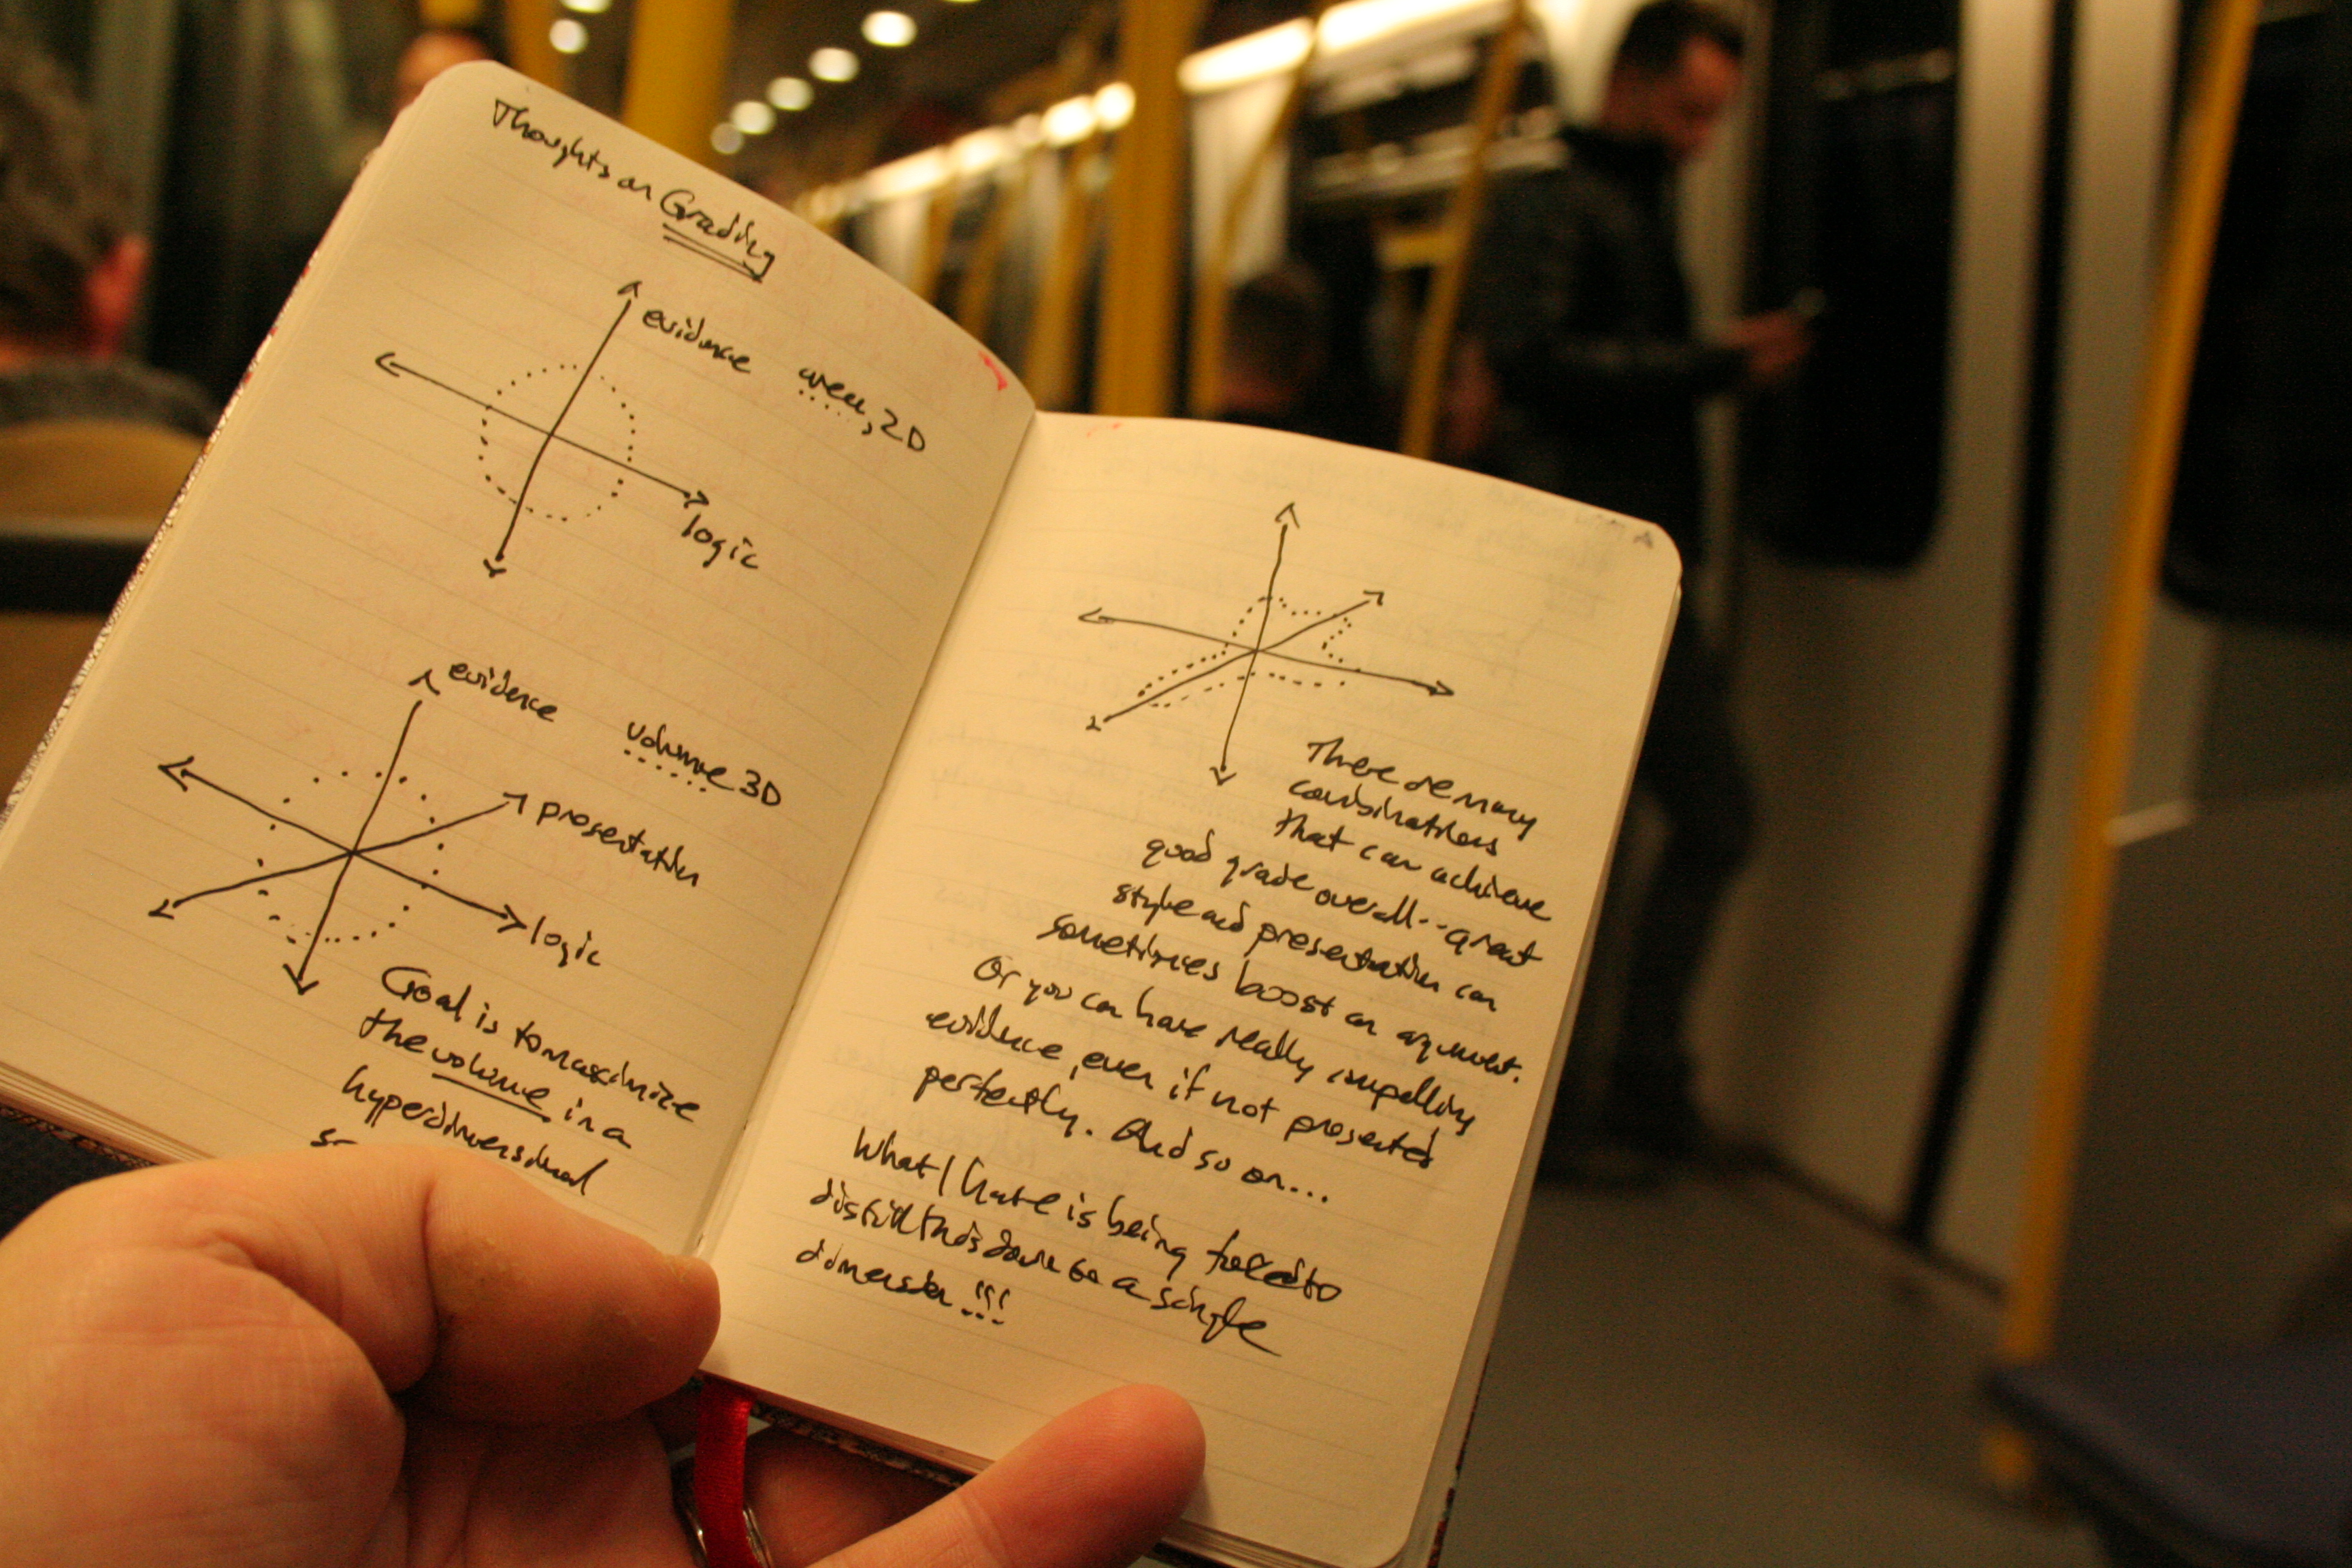 Thoughts on Grading
evidence
area, 2D
logic
evidence
volume 3D
presentation
logic
Goal is to maximize
the volume in a
hyperdimensional
There are many
combinations
that can achieve
good grade overall... great
style and presentation can
sometimes boost an argument.
Or you can have really compelling
evidence, even if not presented
perfectly. And so on...
What I hate is being forced to
distill this down to a single
dimension!!!